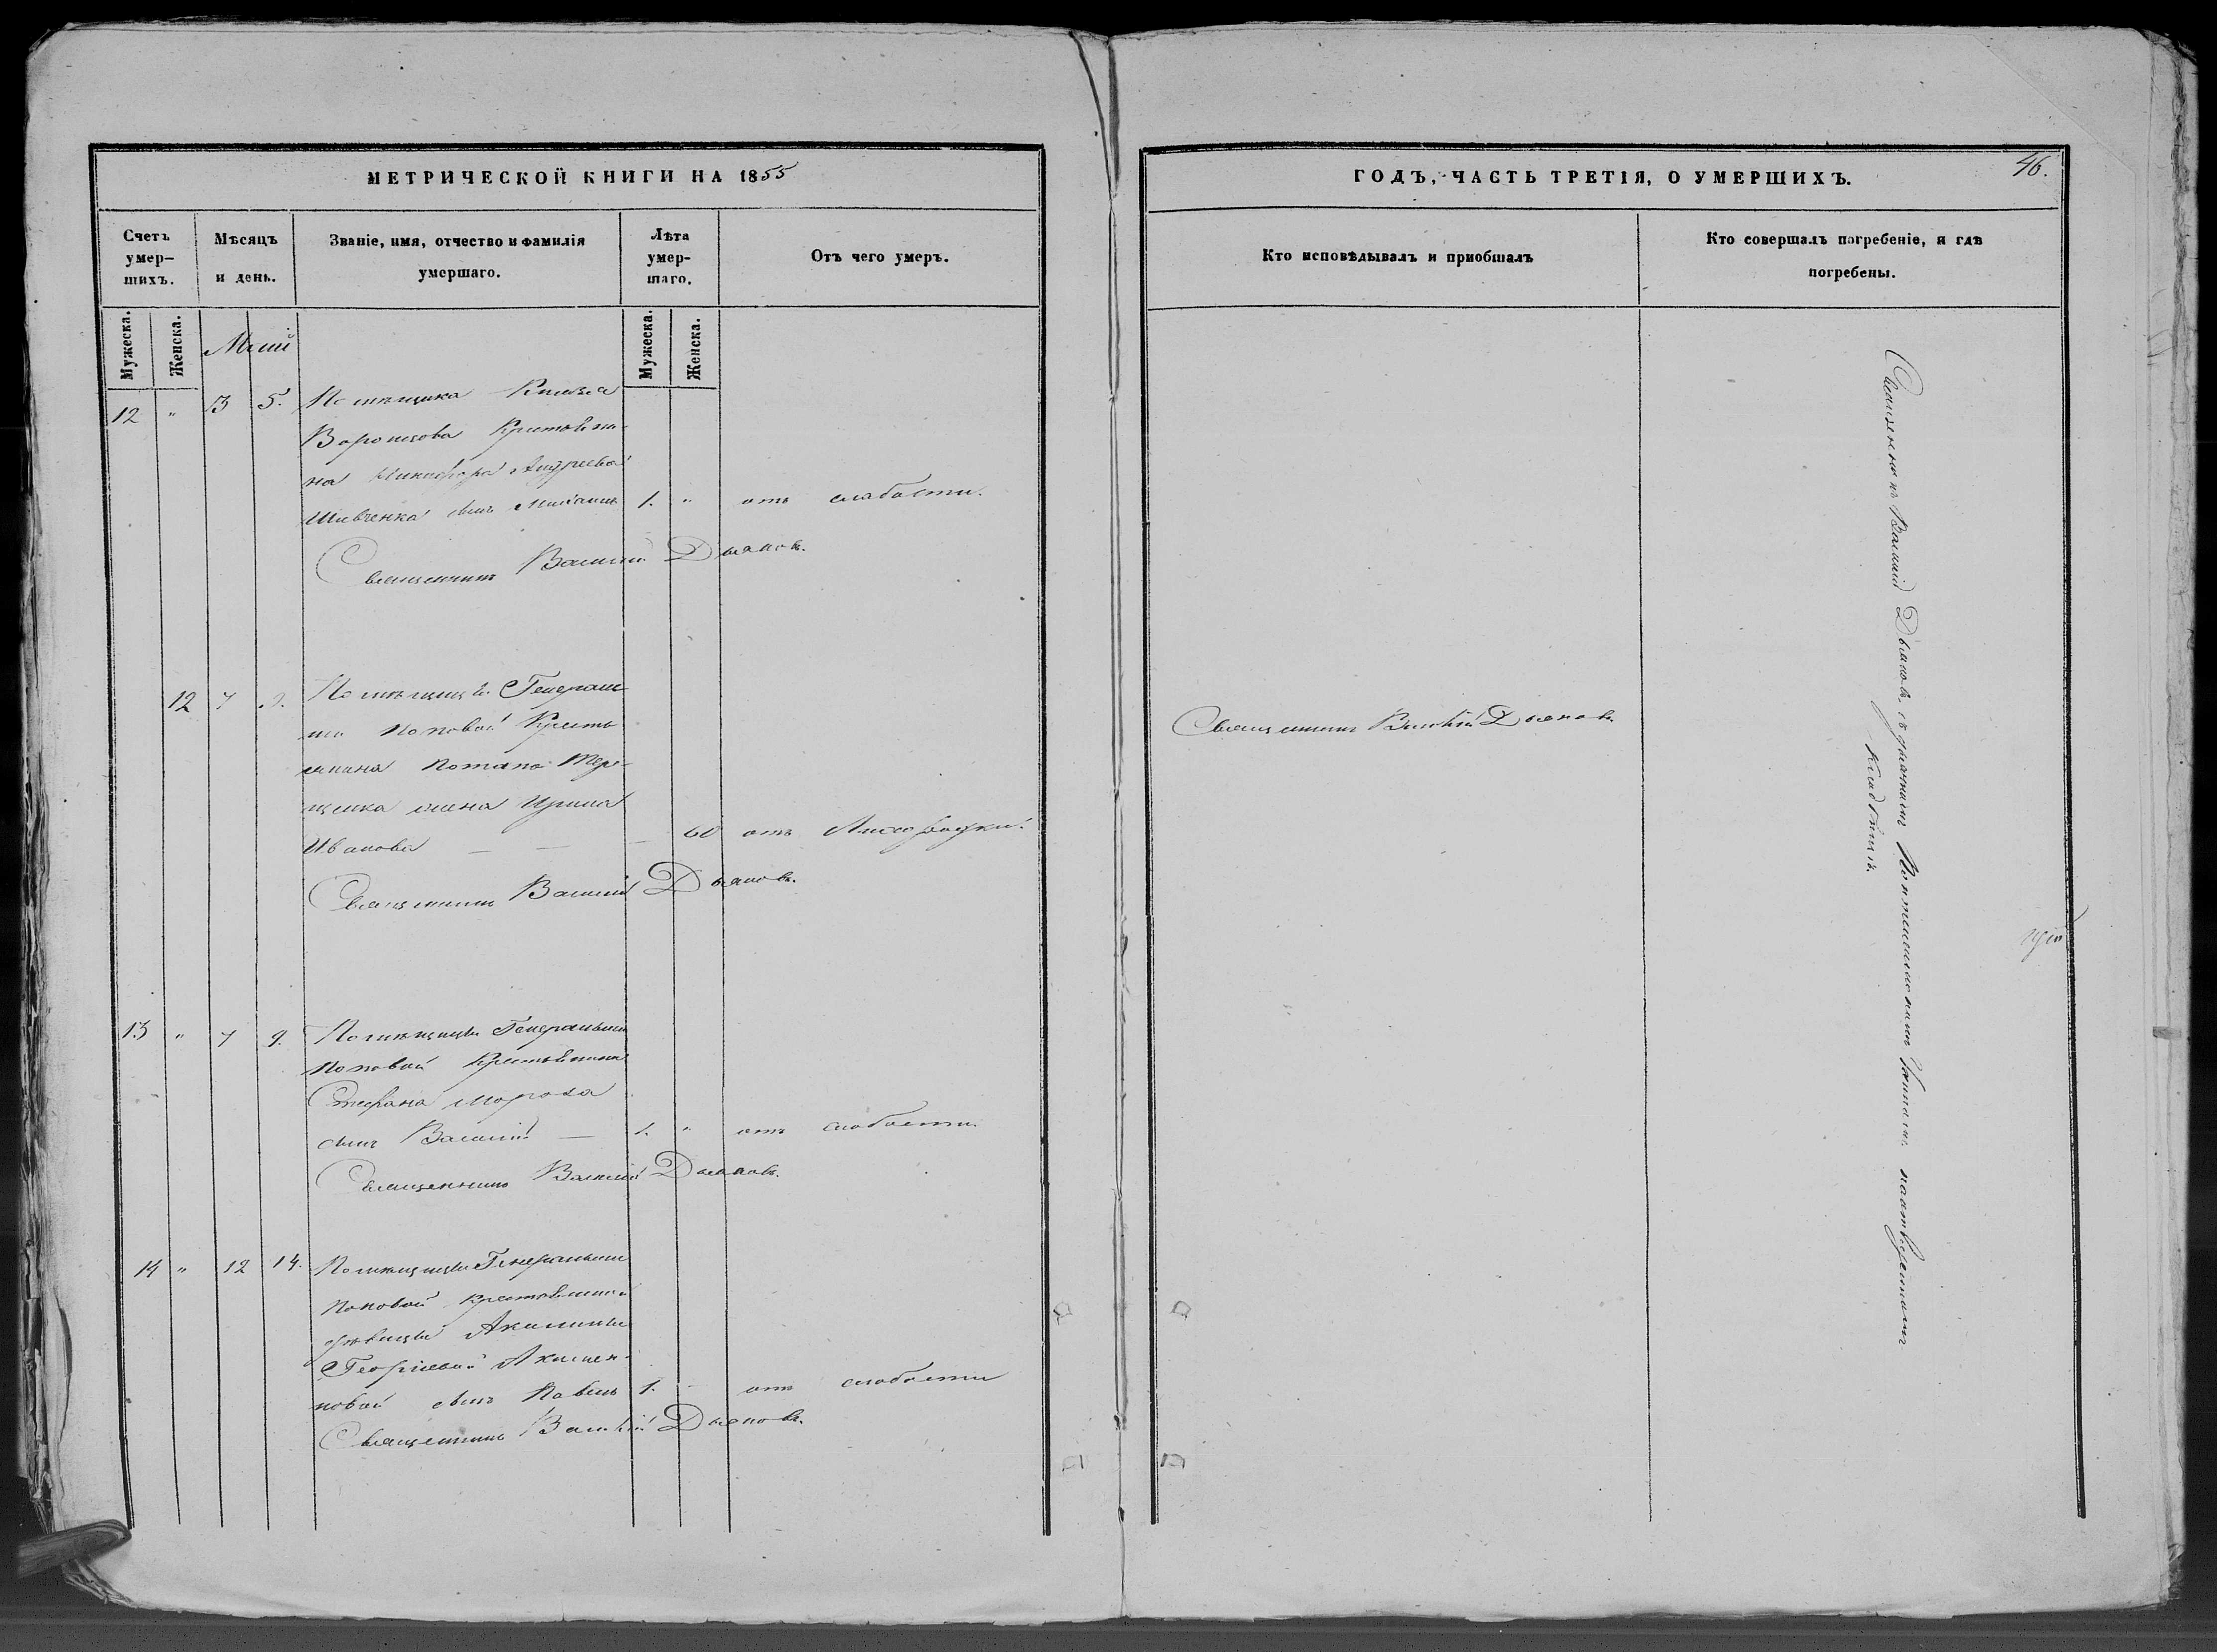 МЕТРИЧЕСКОЙ КНИГИ НА 1855
Счетъ умер-шихъ.
Мѣсяцъ и день.
Званіе, имя, отчество и фамилія умершаго.
Лѣта умер-шаго.
Отъ чего умеръ.
Мужеска.
Женска.
Маій
Мужеска.
Женска.
12 " 3 5. Помѣщика Князя
Воронцова Крестьяни-
на Никифора Андреева
Шевченка сынъ Михаилъ 1. " отъ слабости.
Священникъ Василій Дьяковъ.
12 7 9. Помѣщицы Генераль-
ши Поповой Кресть
янина Потапа Тере-
щенка жена Ирина
Иванова — — — 60 отъ Лихорадки.
Священникъ Василій Дьяковъ.
13 " 7 9. Помѣщицы Генеральши
Поповой Крестьянина
Стефана Мороза
сынъ Василій — 1. " отъ слабости.
Священникъ Василій Дьяковъ.
14 " 12 14. Помѣщицы Генеральши
Поповой крестьянской
дѣвицы Акилины
Георгіевой
новой сынъ Павелъ 1. - отъ слабости
Священникъ Василій Дьяковъ.
46.
ГОДЪ, ЧАСТЬ ТРЕТІЯ, О УМЕРШИХЪ.
Кто исповѣдывалъ и пріобщалъ
Кто совершалъ погребеніе, и гдѣ погребены.
Священникъ Василій Дьяковъ
Священникъ Василій Дьяковъ съ дьячкомъ на отведенномъ
кладбищѣ.